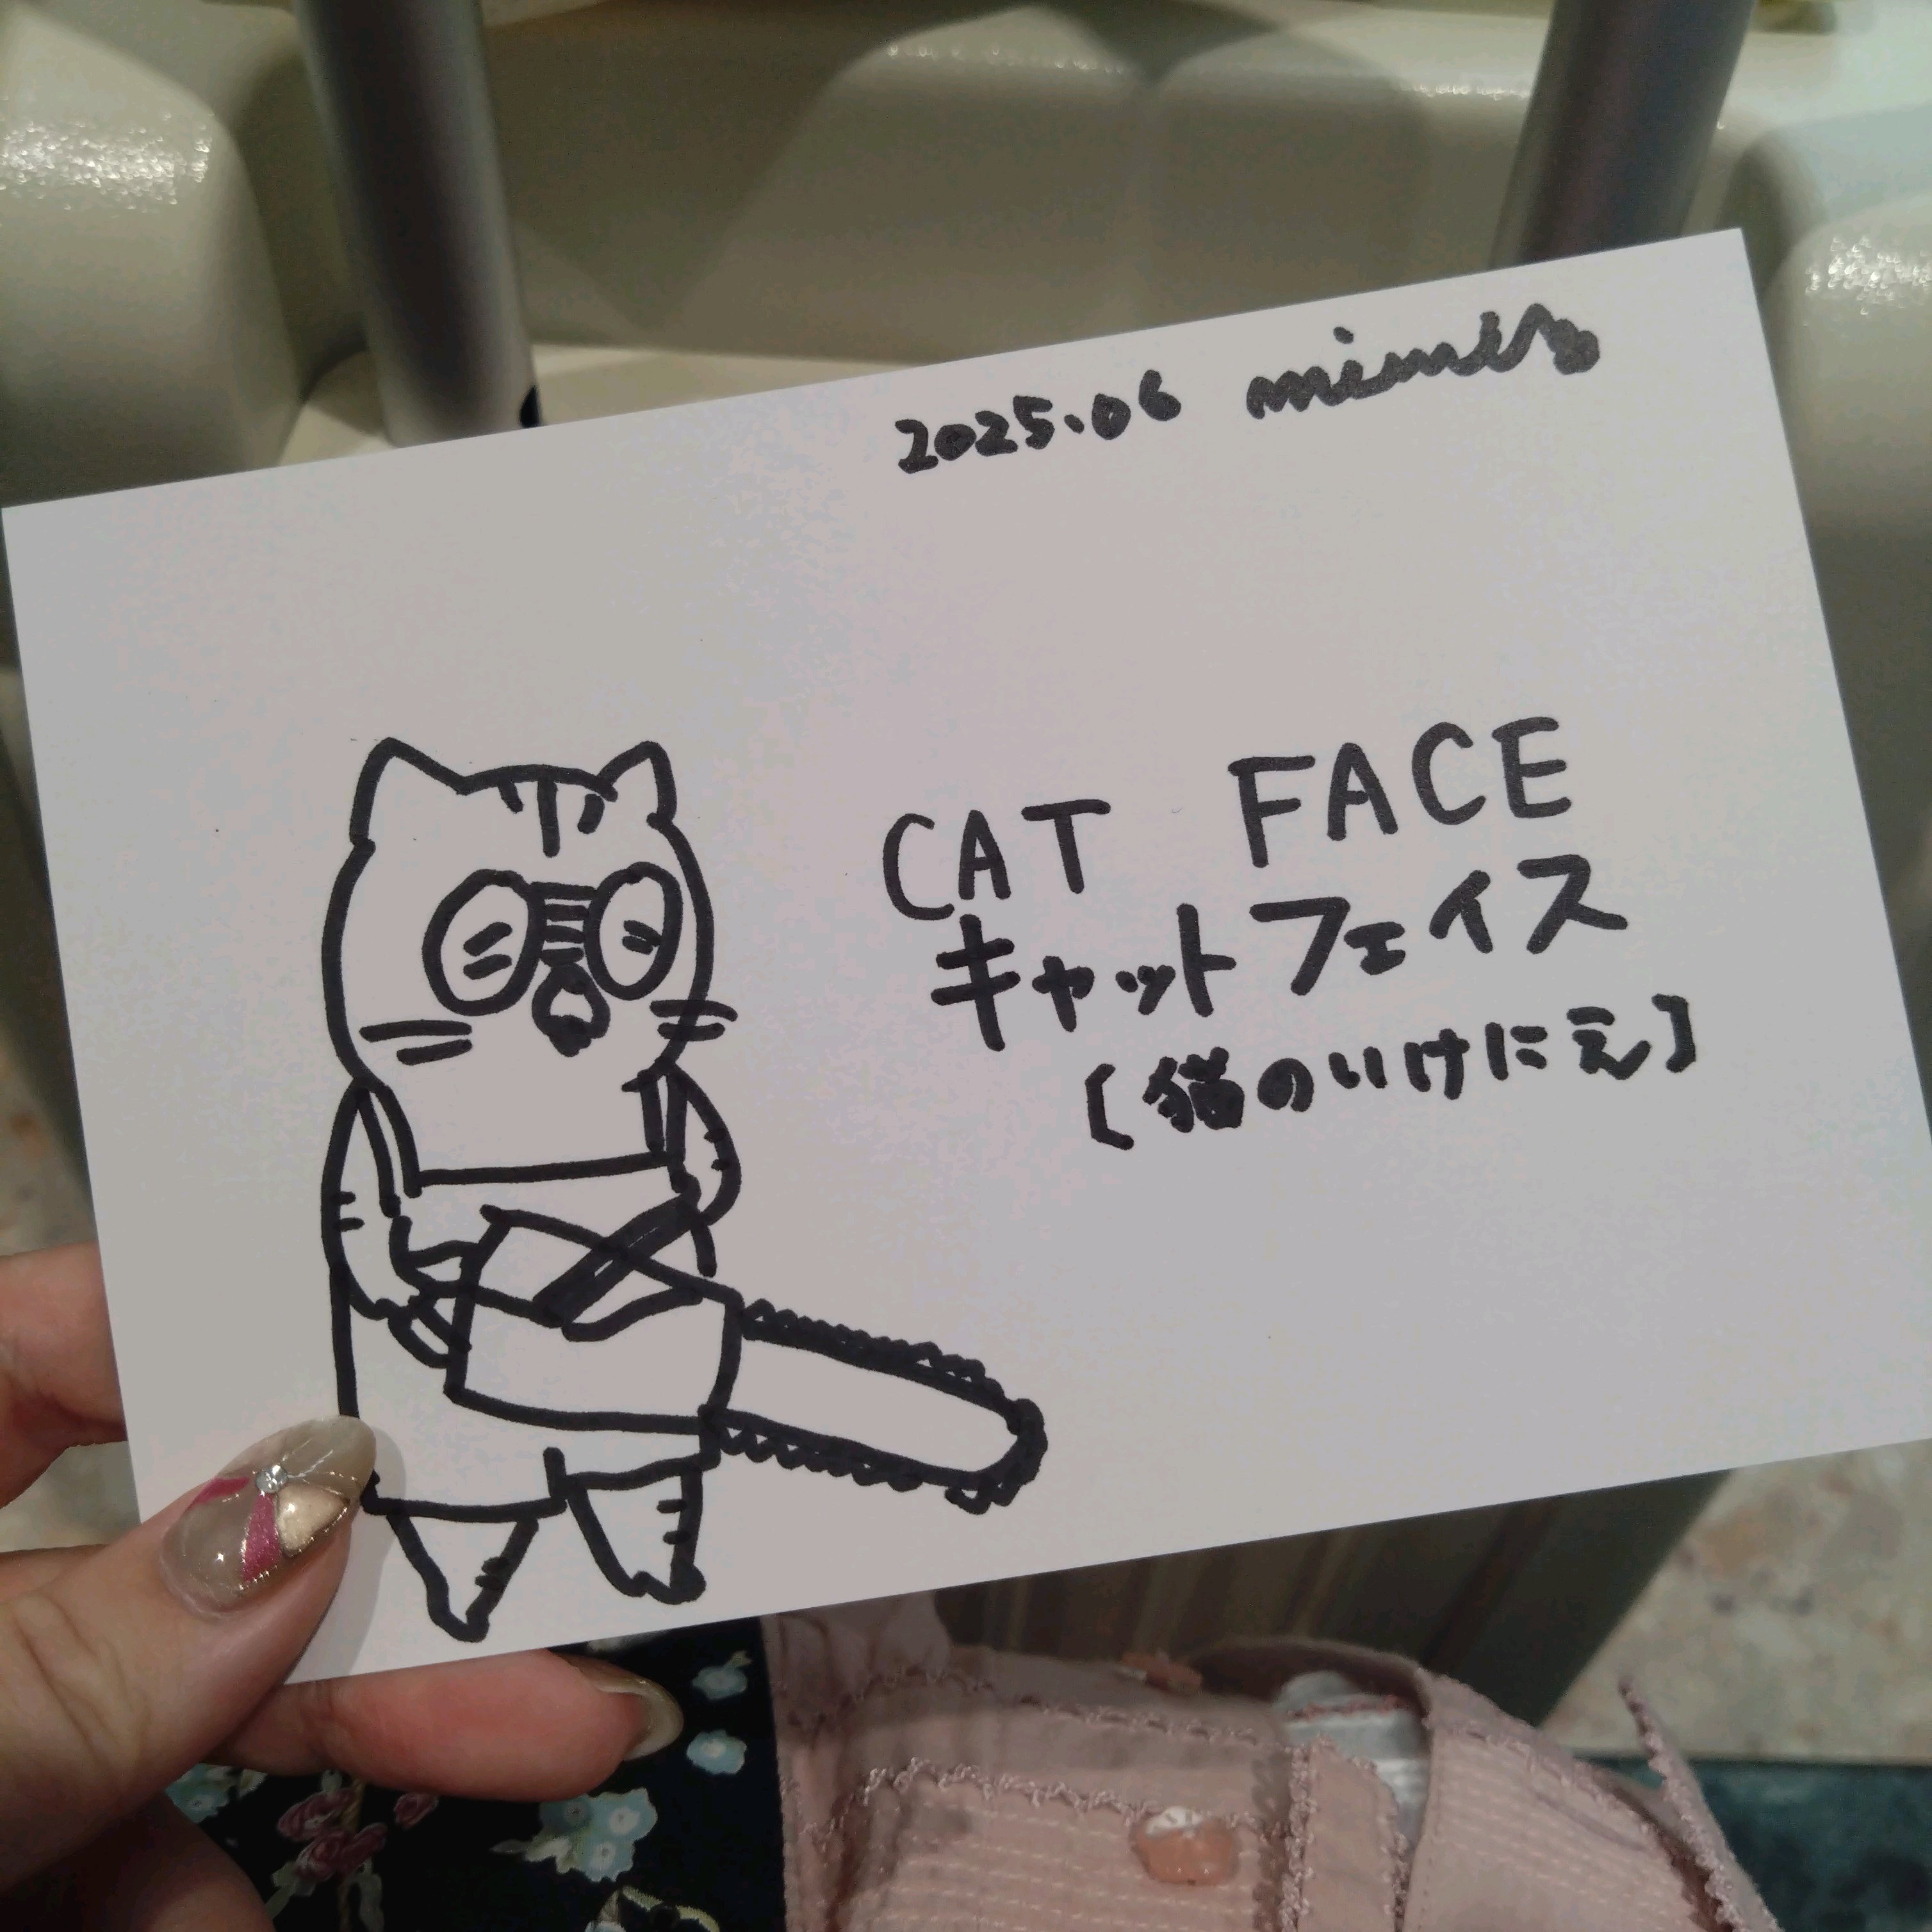 2025.06
CAT FACE
キャットフェイス
[猫のいけにえ]